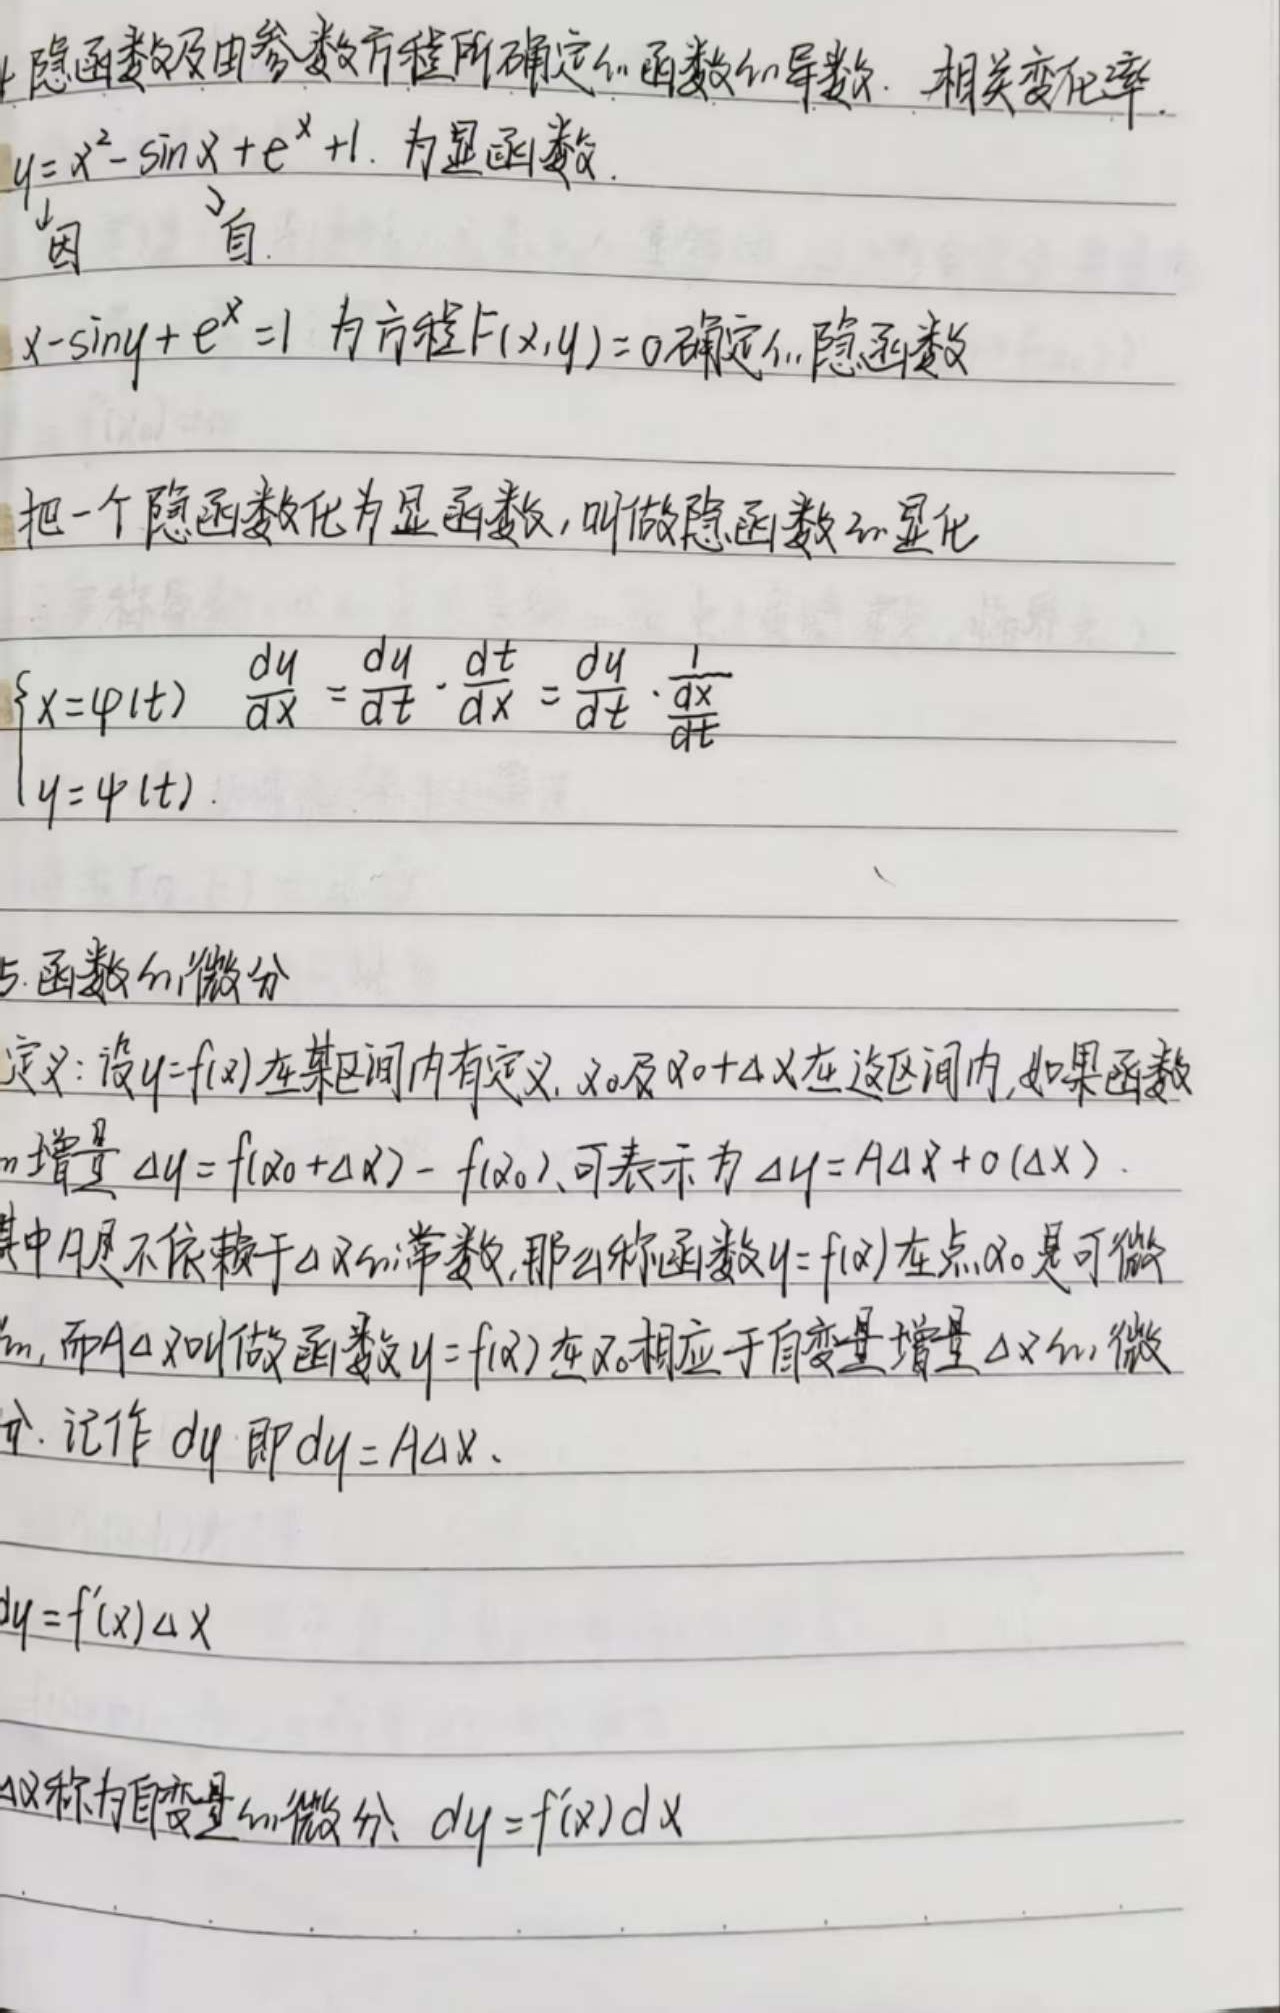 4 隐函数及由参数方程所确定的函数的导数. 相关变化率.
y=x²-sinx+eˣ+1. 为显函数.
↓因 ↘自.
x-siny+eˣ=1 为方程F(x,y)=0确定的隐函数
把一个隐函数化为显函数,叫做隐函数的显化
{x=φ(t) dy/dx = dy/dt · dt/dx = dy/dt · 1/(dx/dt)
y=ψ(t).
5.函数的微分
定义:设y=f(x)在某区间内有定义,x₀及x₀+Δx在这区间内,如果函数
的增量 Δy=f(x₀+Δx)-f(x₀)、可表示为Δy=AΔx+o(Δx).
其中A是不依赖于Δx的常数,那么称函数y=f(x)在点x₀是可微
的,而AΔx叫做函数y=f(x)在x₀相应于自变量增量Δx的微
分.记作 dy 即dy=AΔx、
dy=f′(x)Δx
Δx称为自变量的微分、dy=f′(x)dx